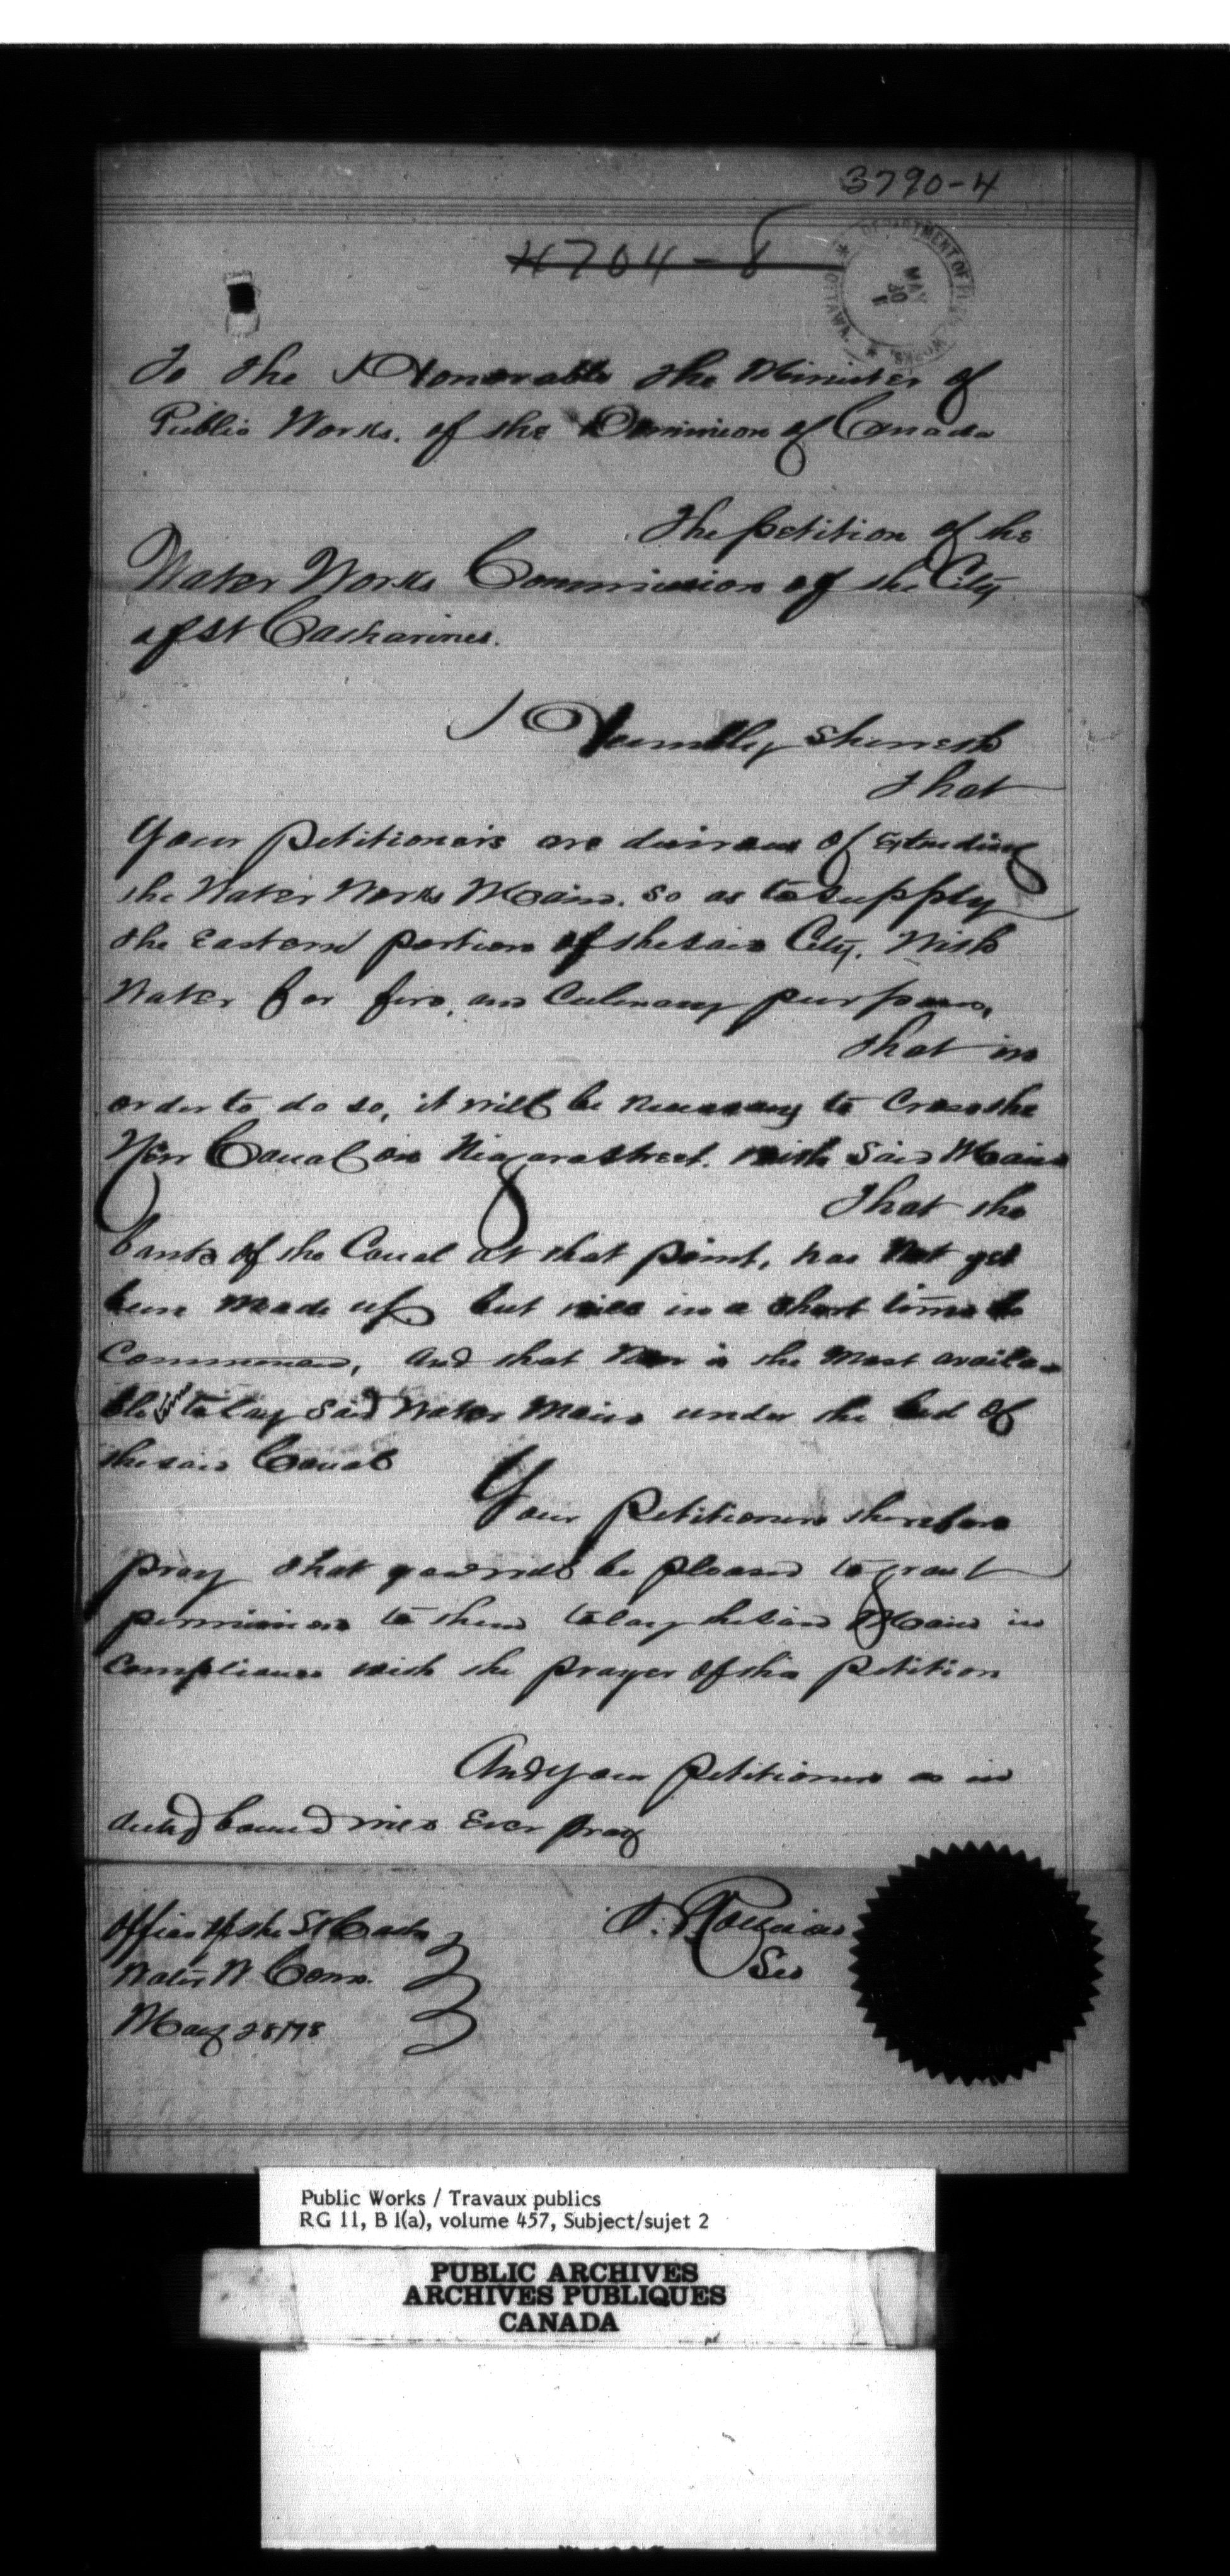 3790-4
4704-8
DEPARTMENT OF PUBLIC WORKS. OTTAWA.
MAY
30
To the Honorable the Minister of
Public Works. of the Dominion of Canada
The petition of the
Water Works Commission of the City
of St Catharines.
Humbly Sheweth
That
Your petitioners are desirous of Extending
the Water Works Main. So as to supply
the Eastern portion of the said City. With
Water for fire, and Culinary purposes,
That in
order to do so, it will be necessary to Cross the
New Canal on Niagara Street. with Said Main
That the
bank of the Canal at that point, has not yet
been made up but will in a short time be
Commenced, and that Now is the most availa-
ble time to lay Said Water Main under the bed of
the said Canal
Your Petitioners therefore
pray that you will be pleased to grant
permission to them to lay the said Main in
Compliance with the prayer of this petition
And your petitioners as in
duty bound will Ever pray
Office of the St Cath
Water W Com.
May 28/78
Sec
Public Works / Travaux publics
RG 11, B 1(a), volume 457, Subject/sujet 2
PUBLIC ARCHIVES
ARCHIVES PUBLIQUES
CANADA